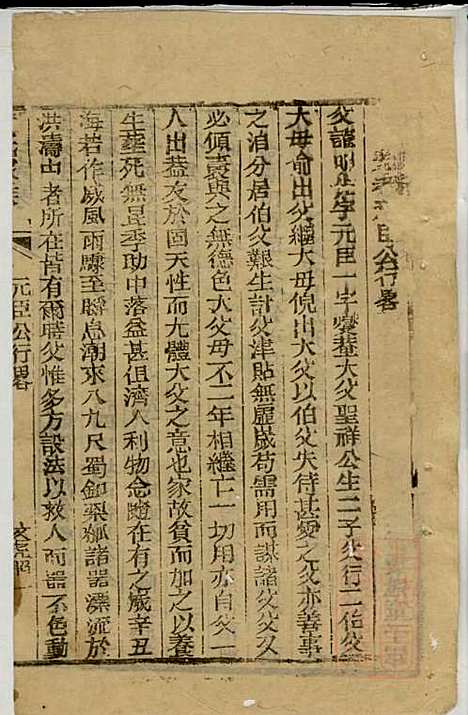 元臣公行畧
父諱明点字元臣一字蒙菴大父聖祥公生二子父行二伯父
大母俞出父繼大母倪出大父以伯父失恃甚愛之父亦善事
之洎分居伯父艱生計父津貼無虛歲苟需用而謀諸父父又
必傾囊與之無德色大父母不二年相繼亡一切用亦自父一
人出蓋友於固天性而尤體大父之意也家故貧而加之以養
生葬死無異季劻中落益甚但濟人利物念隨在有之歲辛丑
海若作威風雨驟至瞬息潮來八九尺蜀釦梁瓢諸器漂流於
洪濤中者所在皆有爾時父惟多方設法以救人而器不色動
元臣公行畧